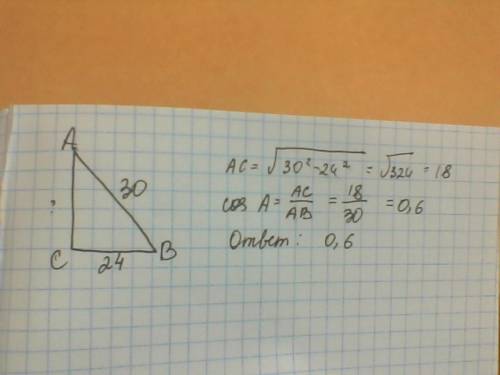 A
30
?
C
24
B
AC = √30² - 24² = √324 = 18
cos A = AC/AB = 18/30 = 0,6
Ответ: 0,6